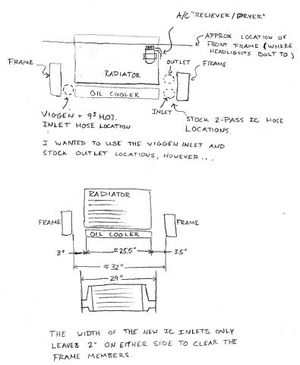 A/C "RECIEVER/DRYER"
APPROX LOCATION OF
FRONT FRAME (WHERE
HEADLIGHTS BOLT TO)
FRAME
RADIATOR
OUTLET
FRAME
OIL COOLER
INLET
VIGGEN + 93 H.O.T.
INLET HOSE LOCATION
STOCK 2-PASS IC HOSE
LOCATIONS.
I WANTED TO USE THE VIGGEN INLET AND
STOCK OUTLET LOCATIONS, HOWEVER...
RADIATOR
FRAME
FRAME
OIL COOLER
3"
≈25.5"
3.5"
≈32"
29"
THE WIDTH OF THE NEW IC INLETS ONLY
LEAVES 2" ON EITHER SIDE TO CLEAR THE
FRAME MEMBERS